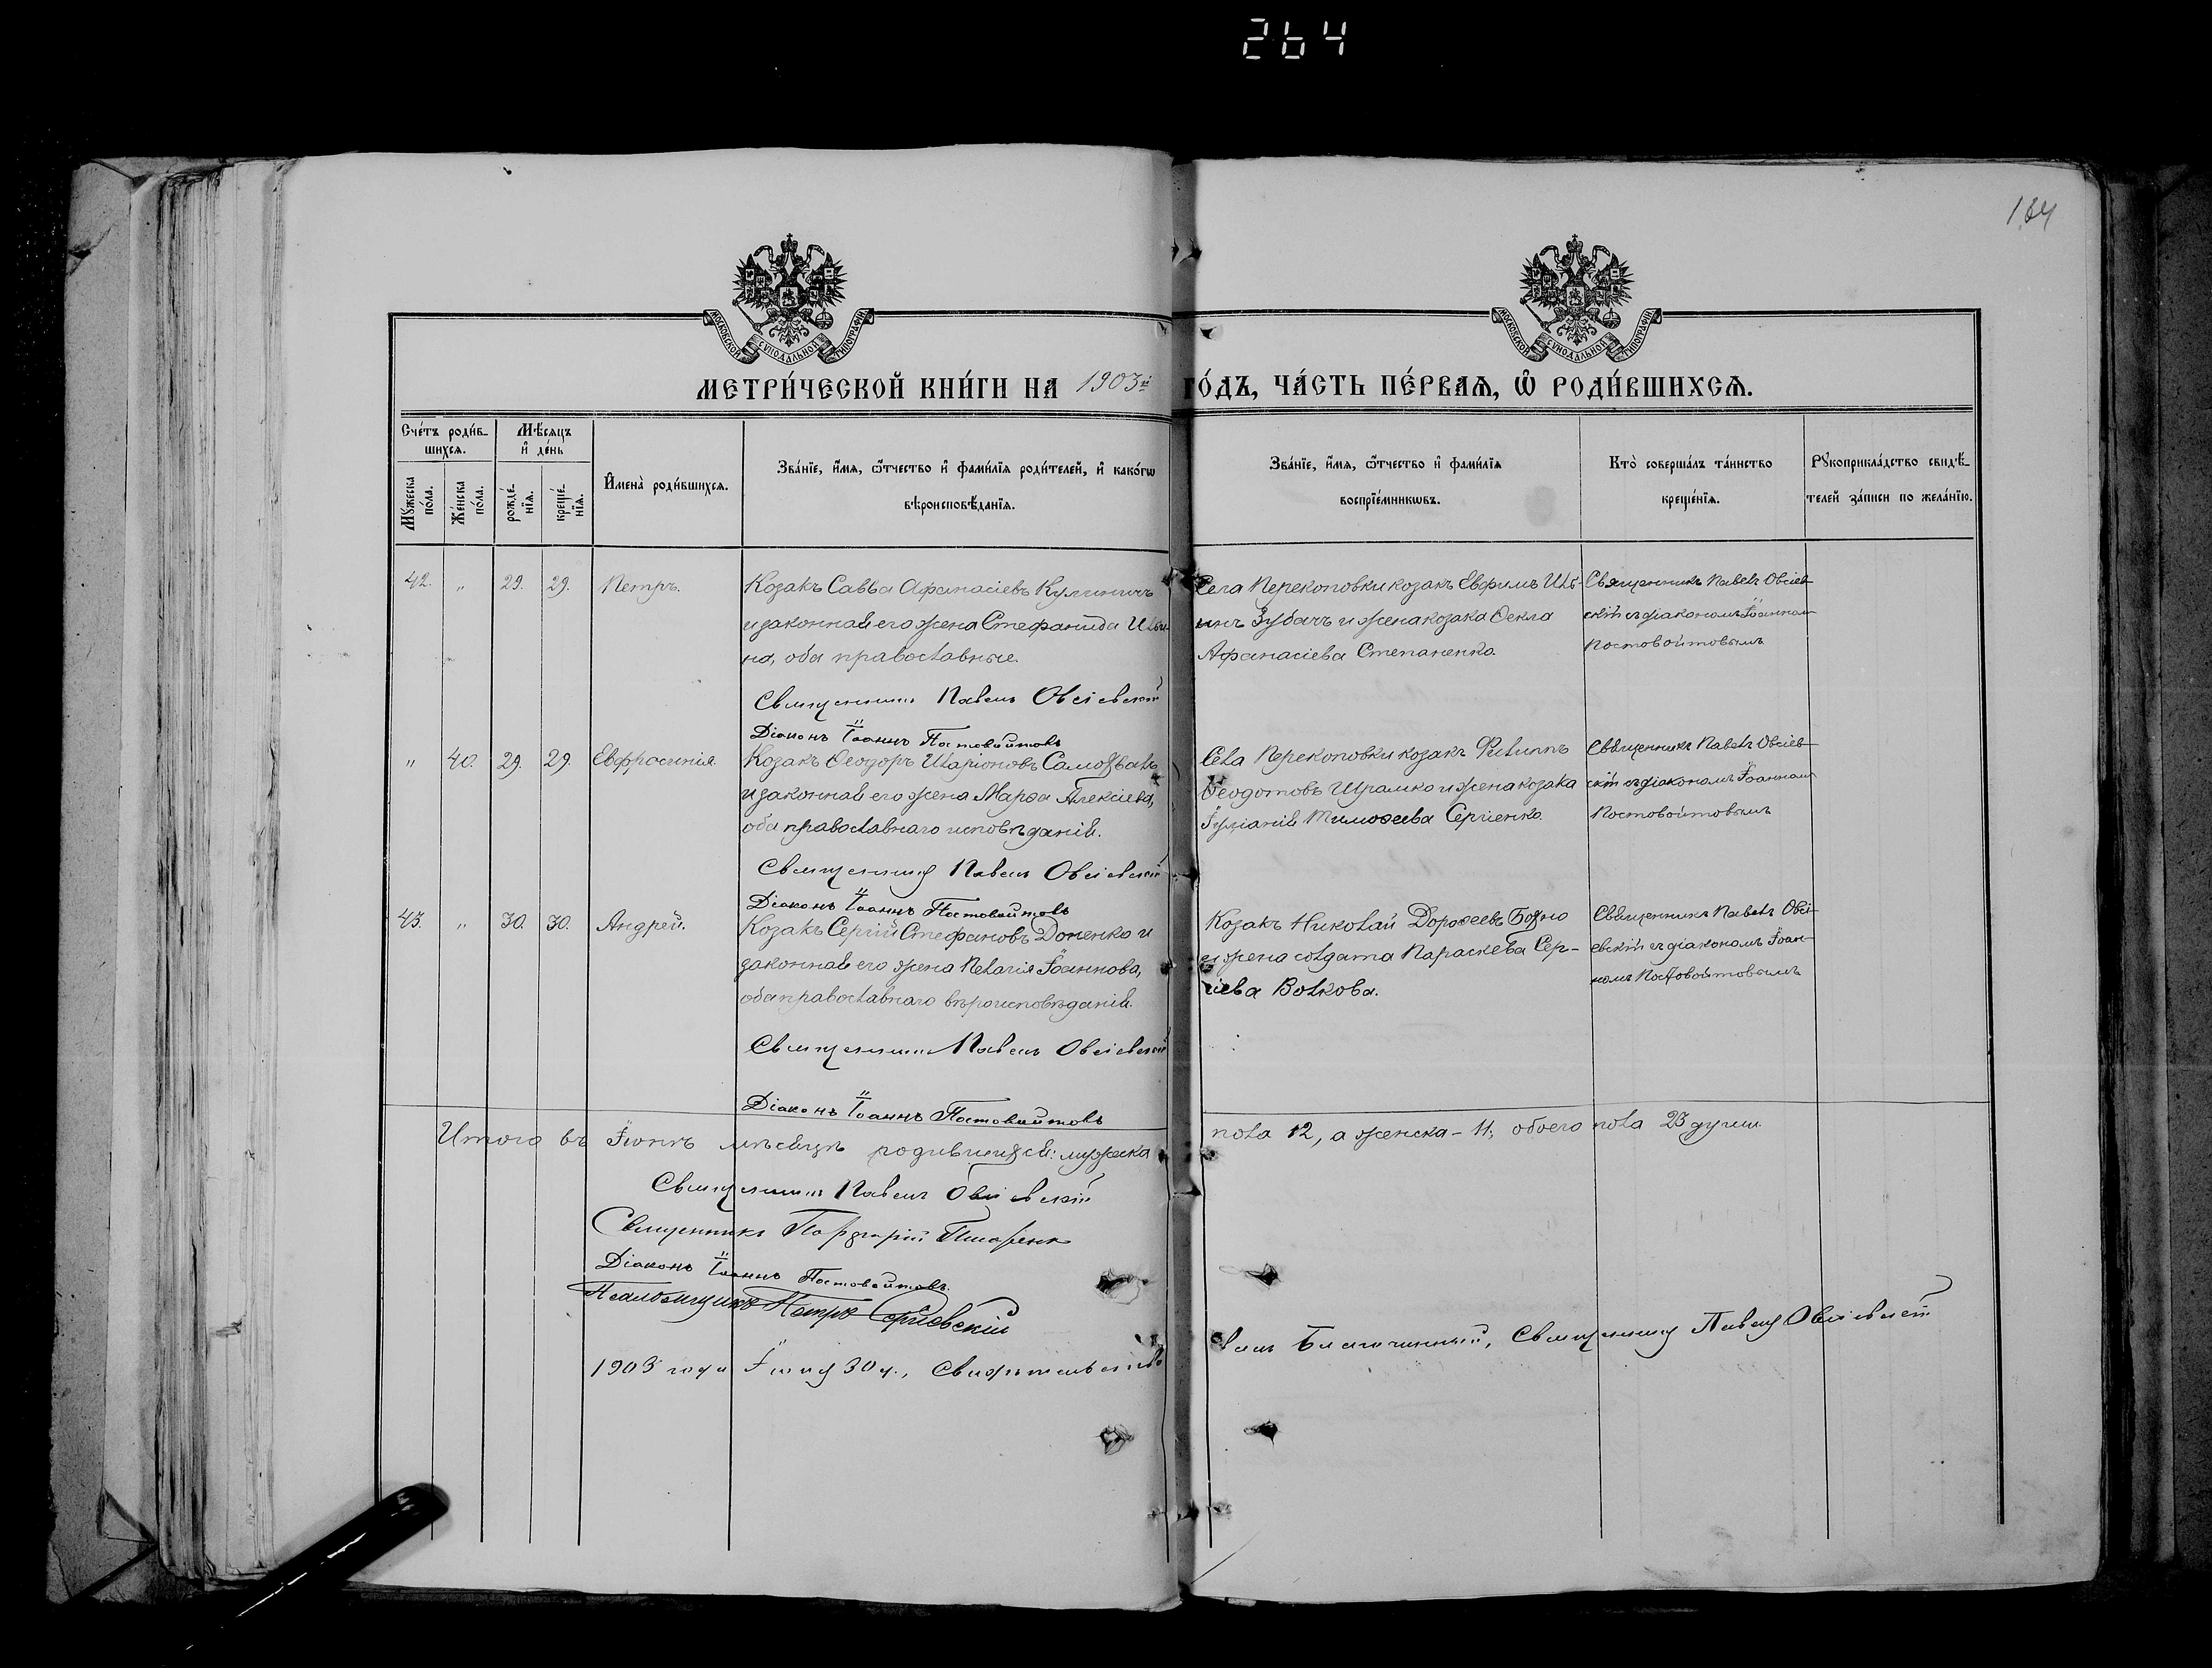 264
164
МОСКОВСКОЙ СѴНОДАЛЬНОЙ ТИПОГРАФІИ
МОСКОВСКОЙ СѴНОДАЛЬНОЙ ТИПОГРАФІИ
МЕТРИ́ЧЕСКОЙ КНИ́ГИ НА 1903й ГО́ДЪ, ЧА́СТЬ ПЕ́РВАѦ, Ѡ҆ РОДИ́ВШИХСѦ.
Сче́тъ роди́в-
шихсѧ.
Мꙋжеска по́ла.
Же́нска по́ла.
Мѣ́сѧцъ и҆ де́нь
рожде́-
нїѧ.
креще́-
нїѧ.
И҆мена̀ роди́вшихсѧ.
Зва́нїе, и҆́мѧ, ѻ҆́тчество и҆ фами́лїѧ роди́телей, и҆ како́гѡ
вѣроисповѣ́данїѧ.
Зва́нїе, и҆́мѧ, ѻ҆́тчество и҆ фами́лїѧ
воспрїе́мникѡвъ.
Кто̀ соверша́лъ та́инство
креще́нїѧ.
Рꙋкоприкла́дство свидѣ́-
телей за́писи по жела́нїю.
42. „ 29. 29. Петръ.
Козакъ Савва Афанасіевъ Кулиничъ
и законная его жена Стефанида Ильи-
на, оба православные.
Священникъ Павелъ Овсіевскій
Діаконъ Іоаннъ Постовойтовъ
Села Перекоповки козакъ Евфимъ Иль-
инъ Зубачъ и жена козака Ѳекла
Афанасіева Степаненко.
Священникъ Павелъ Овсіев-
скій съ діакономъ Іоанномъ
Постовойтовымъ
„ 40. 29. 29. Евфросинія
Козакъ Ѳеодоръ Иларіоновъ Самодваль
и законная его жена Марѳа Алексіева,
оба православнаго исповѣданія.
Священникъ Павелъ Овсіевскій
Діаконъ Іоаннъ Постовойтовъ
Села Перекоповки козакъ Филиппъ
Ѳеодотовъ Шрамко и жена козака
Іуліанія Тимоѳеева Сергіенко.
Священникъ Павелъ Овсіев-
скій съ діакономъ Іоанномъ
Постовойтовымъ
43. „ 30. 30. Андрей.
Козакъ Сергій Стефановъ Доненко и
законная его жена Пелагія Іоаннова,
оба православнаго вѣроисповѣданія.
Священникъ Павелъ Овсіевскій
Діаконъ Іоаннъ Постовойтовъ
Козакъ Николай Дороѳеевъ Божко
и жена солдата Параскева Сер-
гіева Волкова.
Священникъ Павелъ Овсі-
евскій съ діакономъ Іоан-
номъ Постовойтовымъ
Итого въ Іюнѣ мѣсяцѣ родившихся: мужска пола 12, а женска - 11; обоего пола 23 души.
Священникъ Павелъ Овсіевскій
Священникъ Порфирій
Діаконъ Іоаннъ Постовойтовъ.
Псаломщикъ Петръ Сергіевскій
1903 года Іюня 30 д., Свидѣтельство-
валъ Благочинный, Священникъ Павелъ Овсіевскій